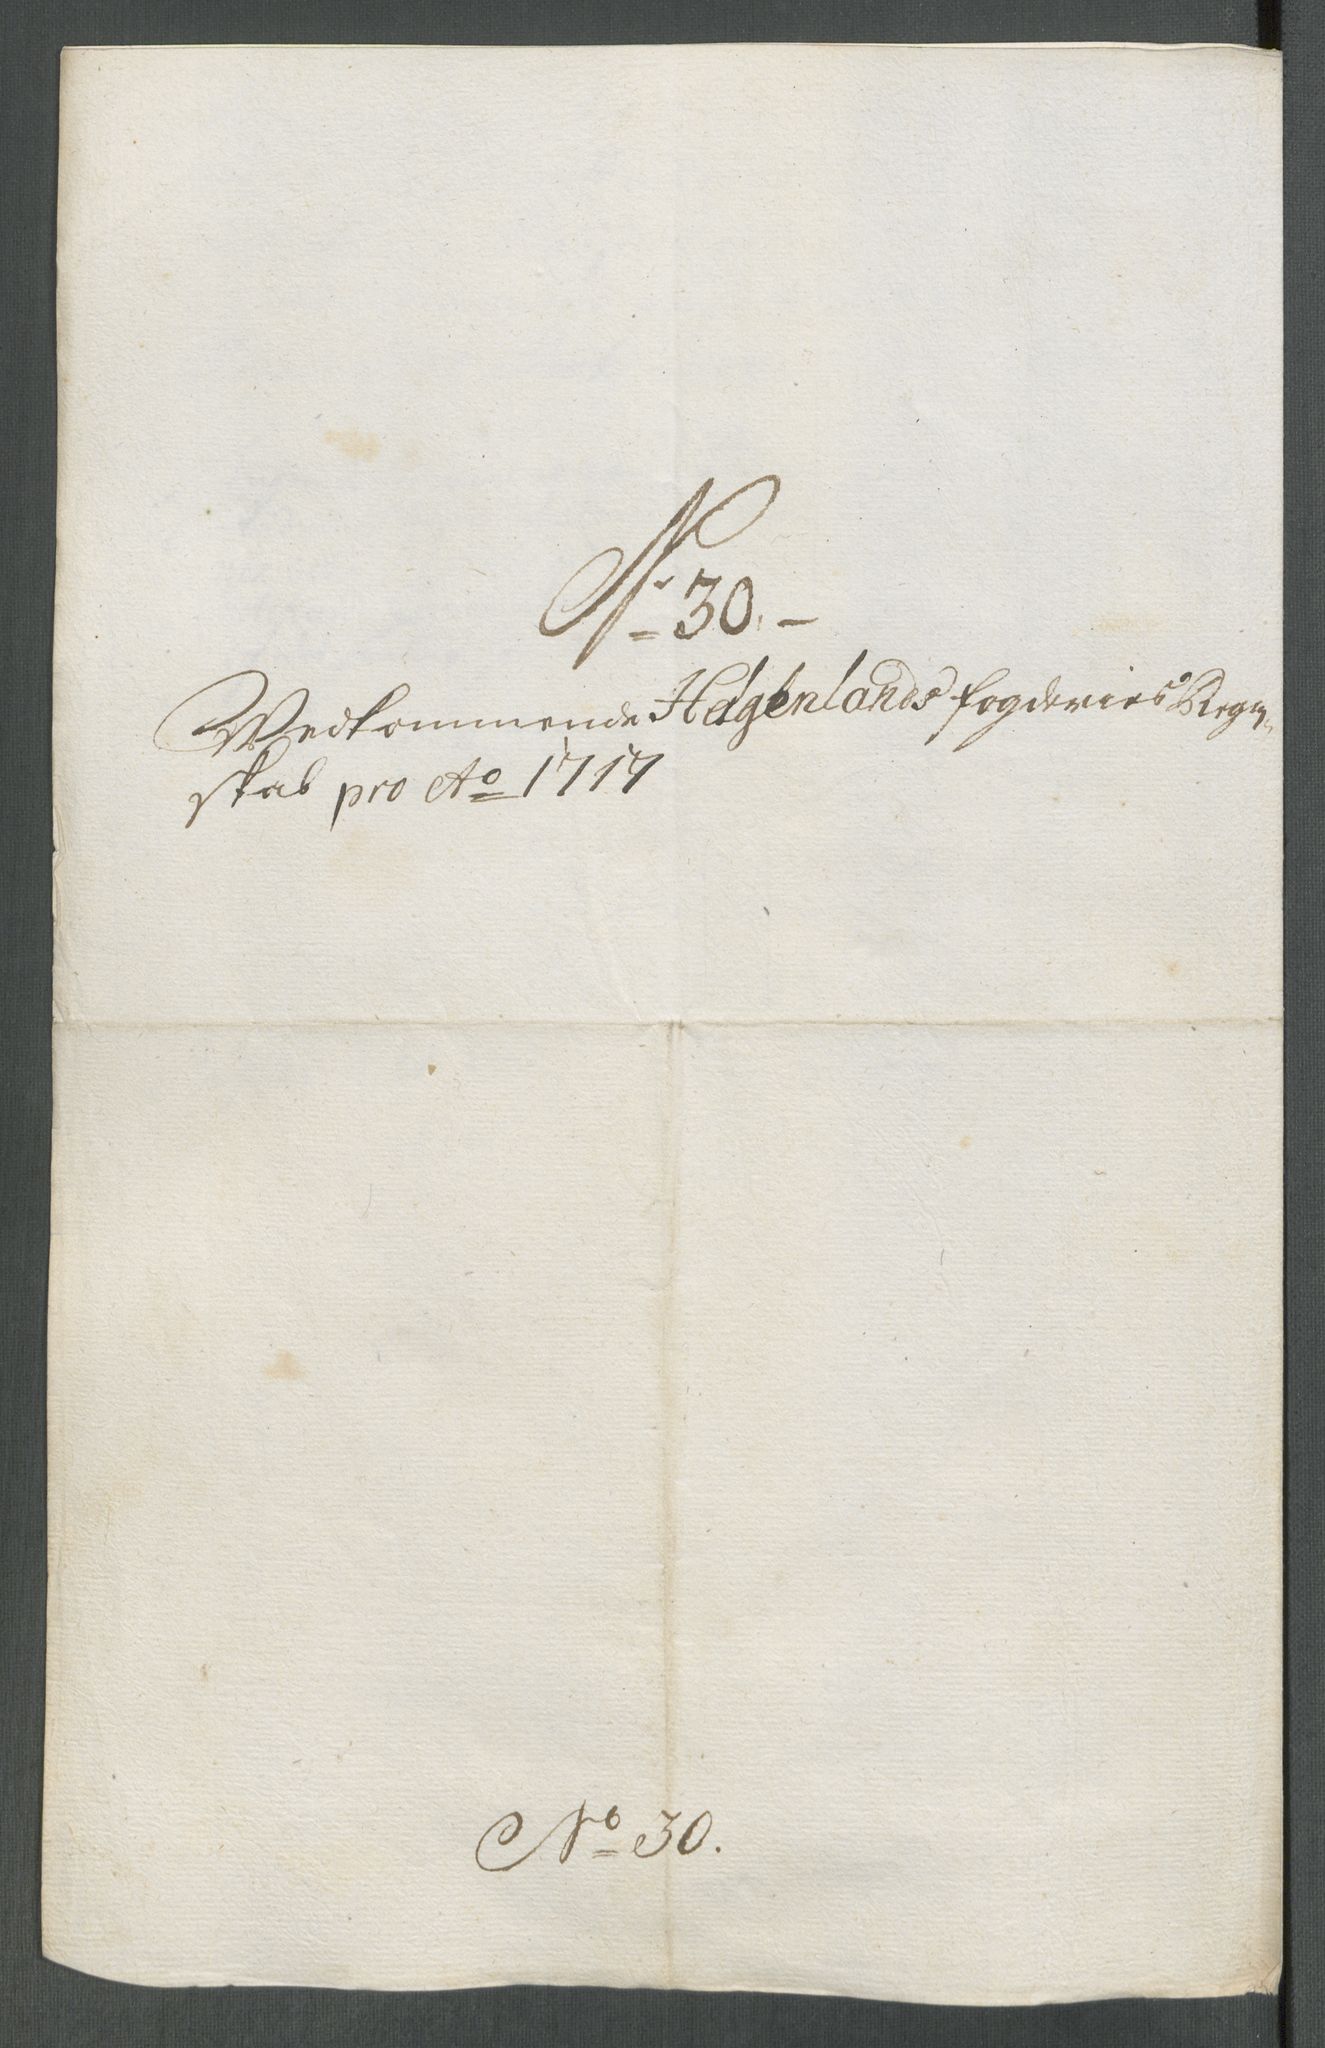 No 30. -
Vedkommende Helgenlands fogderies Regn-
skab pro Ao 1717
No 30.